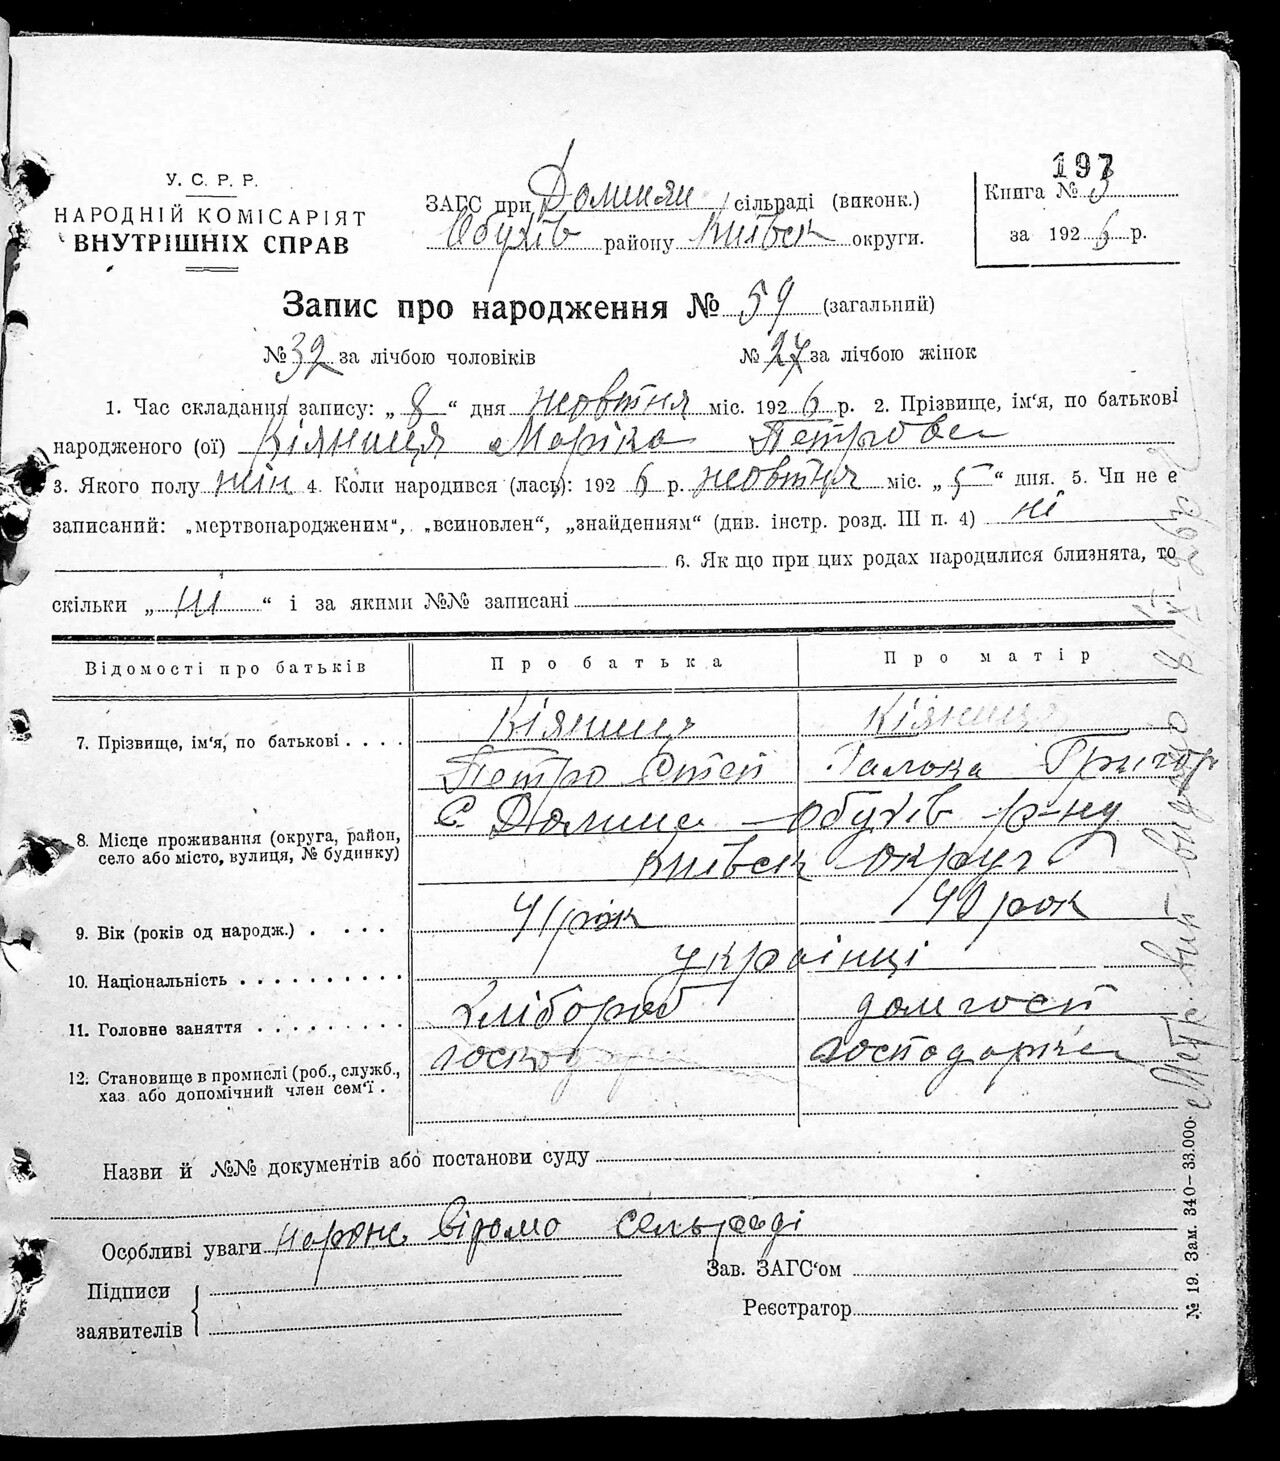 193
У. С. Р. Р.
НАРОДНІЙ КОМІСАРІЯТ
ВНУТРІШНІХ СПРАВ
ЗАГС при Долинян сільраді (виконк.)
Обухів району Київск округи.
Книга № 3
за 1926 р.
Запис про народження № 59 (загальний)
№ 32 за лічбою чоловіків № 27 за лічбою жінок
1. Час складання запису: „ 8 “ дня жовтня міс. 1926 р. 2. Прізвище, ім'я, по батькові
народженого (ої) Кіяниця Маріка Петровa
3. Якого полу жін 4. Коли народився (лась): 1926 р. жовтня міс. „ 5 “ дня. 5. Чи не є
записаний: „мертвонародженим“, „всиновлен“, „знайденням“ (див. інстр. розд. III п. 4) ні
6. Як що при цих родах народилися близнята, то
скільки „ “ і за якими №№ записані
Відомості про батьків Про батька Про матір
7. Прізвище, ім'я, по батькові . . . . Кіяниця Кіяниця
Петро Степ Галька Григор
8. Місце проживання (округа, район, село або місто, вулиця, № будинку) С. Долина Обухів р-ну
Київск округи
9. Вік (років од народж.) . . . . 41 рік 40 рок
10. Національність . . . . . . . . . . українці
11. Головне заняття . . . . . . . . . Хлібороб дом госп
12. Становище в промислі (роб., служб., хаз. або допомічний член сем'ї . господар господарка
Назви й №№ документів або постанови суду
Особливі уваги народж. відомо сельраді
Підписи
заявителів
Зав. ЗАГС'ом
Реєстратор
№ 19. Зам. 340—33.000.
Метр. вип. видано 8/X-1926 р